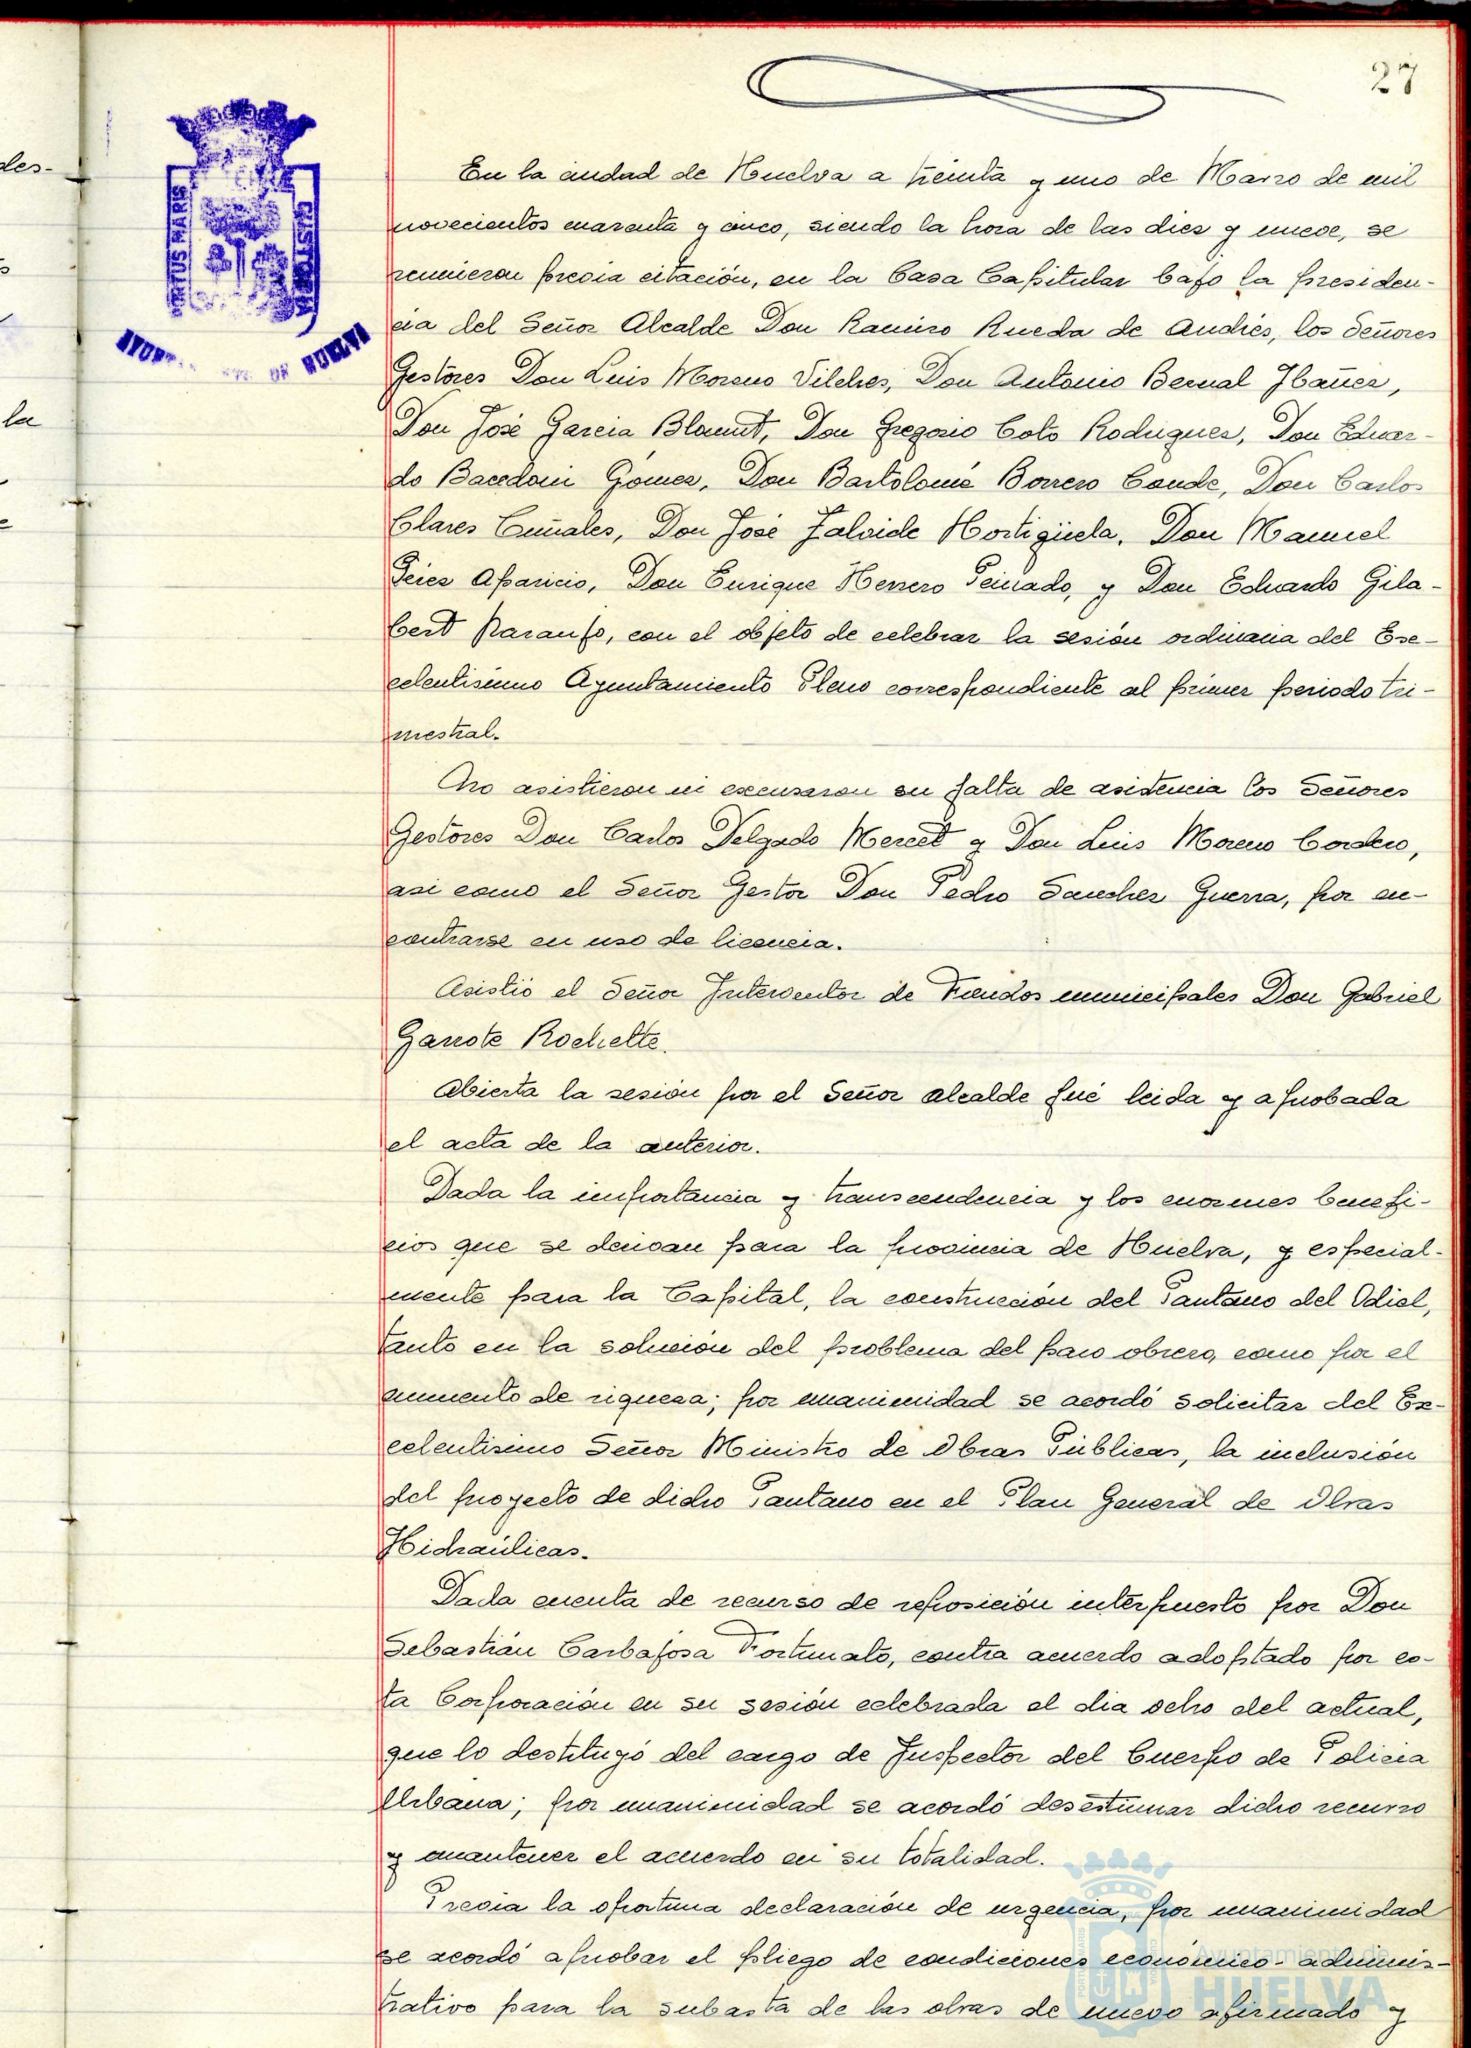 27
des-
la
PORTUS MARIS
CUSTODIA
HUELVA
En la ciudad de Huelva a treinta y uno de Marzo de mil
novecientos cuarenta y cinco, siendo la hora de las diez y nueve, se
reunieron previa citación, en la Casa Capitular bajo la presiden-
cia del Señor Alcalde Don Ramiro Rueda de Andrés, los Señores
Gestores Don Luis Moreno Vilches, Don Antonio Bernal Ibañez,
Don José Garcia Don Gregorio Coto Rodriguez, Don Eduar-
do Gómez, Don Bartolomé Borrero Conde, Don Carlos
Clares Don José Hortigüela, Don Manuel
Aparicio, Don Enrique Herrero Peinado, y Don Eduardo Gila-
bert Naranjo, con el objeto de celebrar la sesión ordinaria del Exe-
celentisimo Ayuntamiento Pleno correspondiente al primer periodo tri-
mestral.
No asistieron ni excusaron su falta de asistencia los Señores
Gestores Don Carlos Delgado Mercet y Don Luis Moreno Cordero,
asi como el Señor Gestor Don Pedro Sanchez Guerra, por en-
contrarse en uso de licencia.
Asistió el Señor Interventor de Fondos municipales Don Gabriel
Garrote Rochette.
Abierta la sesión por el Señor Alcalde fué leida y aprobada
el acta de la anterior.
Dada la importancia y transcendencia y los enormes benefi-
cios que se derivan para la provincia de Huelva, y especial-
mente para la Capital, la construcción del Pantano del Odiel,
tanto en la solución del problema del paro obrero, como por el
aumento de riqueza; por unanimidad se acordó solicitar del Ex-
celentisimo Señor Ministro de Obras Públicas, la inclusión
del proyecto de dicho Pantano en el Plan General de Obras
Hidraúlicas.
Dada cuenta de recurso de reposición interpuesto por Don
Sebastián Carbajosa Fortunato, contra acuerdo adoptado por es-
ta Corporación en su sesión celebrada el dia ocho del actual,
que lo destituyó del cargo de Inspector del Cuerpo de Policia
Urbana; por unanimidad se acordó desestimar dicho recurso
y mantener el acuerdo en su totalidad.
Previa la oportuna declaración de urgencia, por unanimidad
se acordó aprobar el pliego de condiciones económico-adminis-
trativo para la subasta de las obras de nuevo afirmado y
Ayuntamiento de
HUELVA